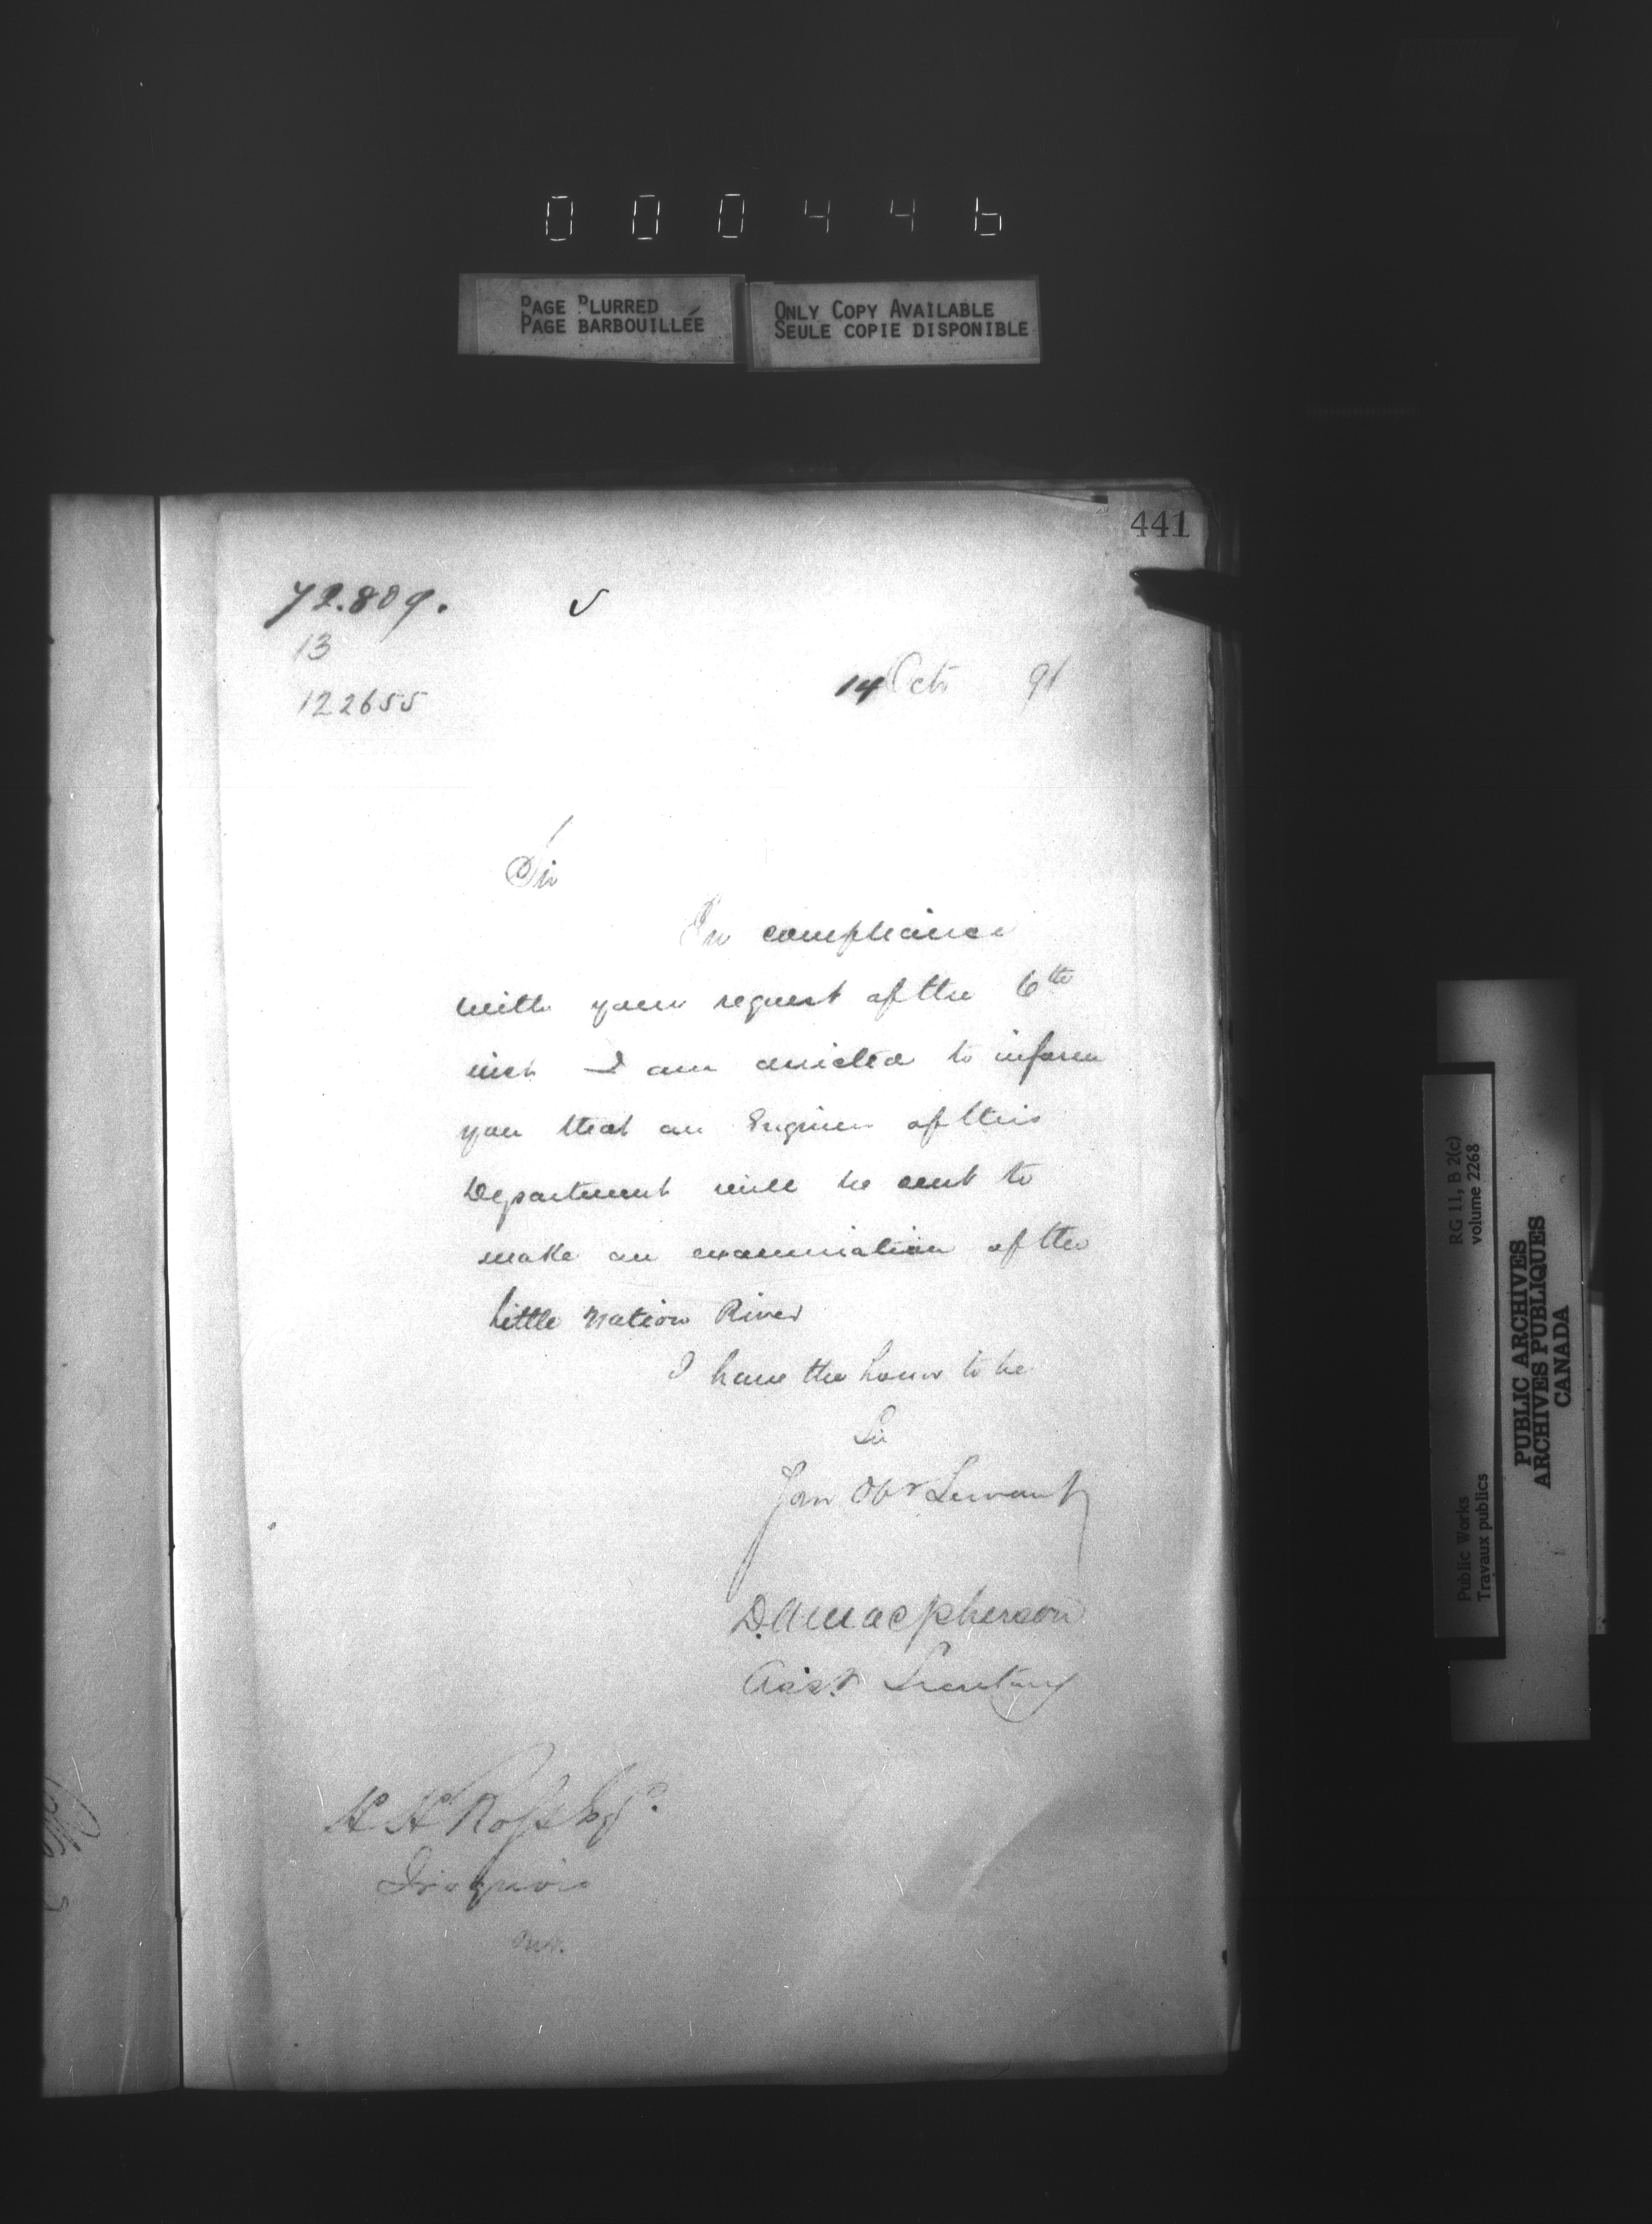 000446
PAGE BLURRED
PAGE BARBOUILLÉE
ONLY COPY AVAILABLE
SEULE COPIE DISPONIBLE
441
72.809.
13
122655
14 Octr 91
Sir
In compliance
with your request of the 6th
inst I am directed to inform
you that an Engineer of this
Department will be sent to
make an examination of the
Little Nation River
I have the honor to be
Sir
Your Obt Servant
D. A Macpherson
Asst Secretary
H H Ross Esqr.
Iroquois
Ont.
RG 11, B 2(c)
volume 2268
Public Works
Travaux publics
PUBLIC ARCHIVES
ARCHIVES PUBLIQUES
CANADA